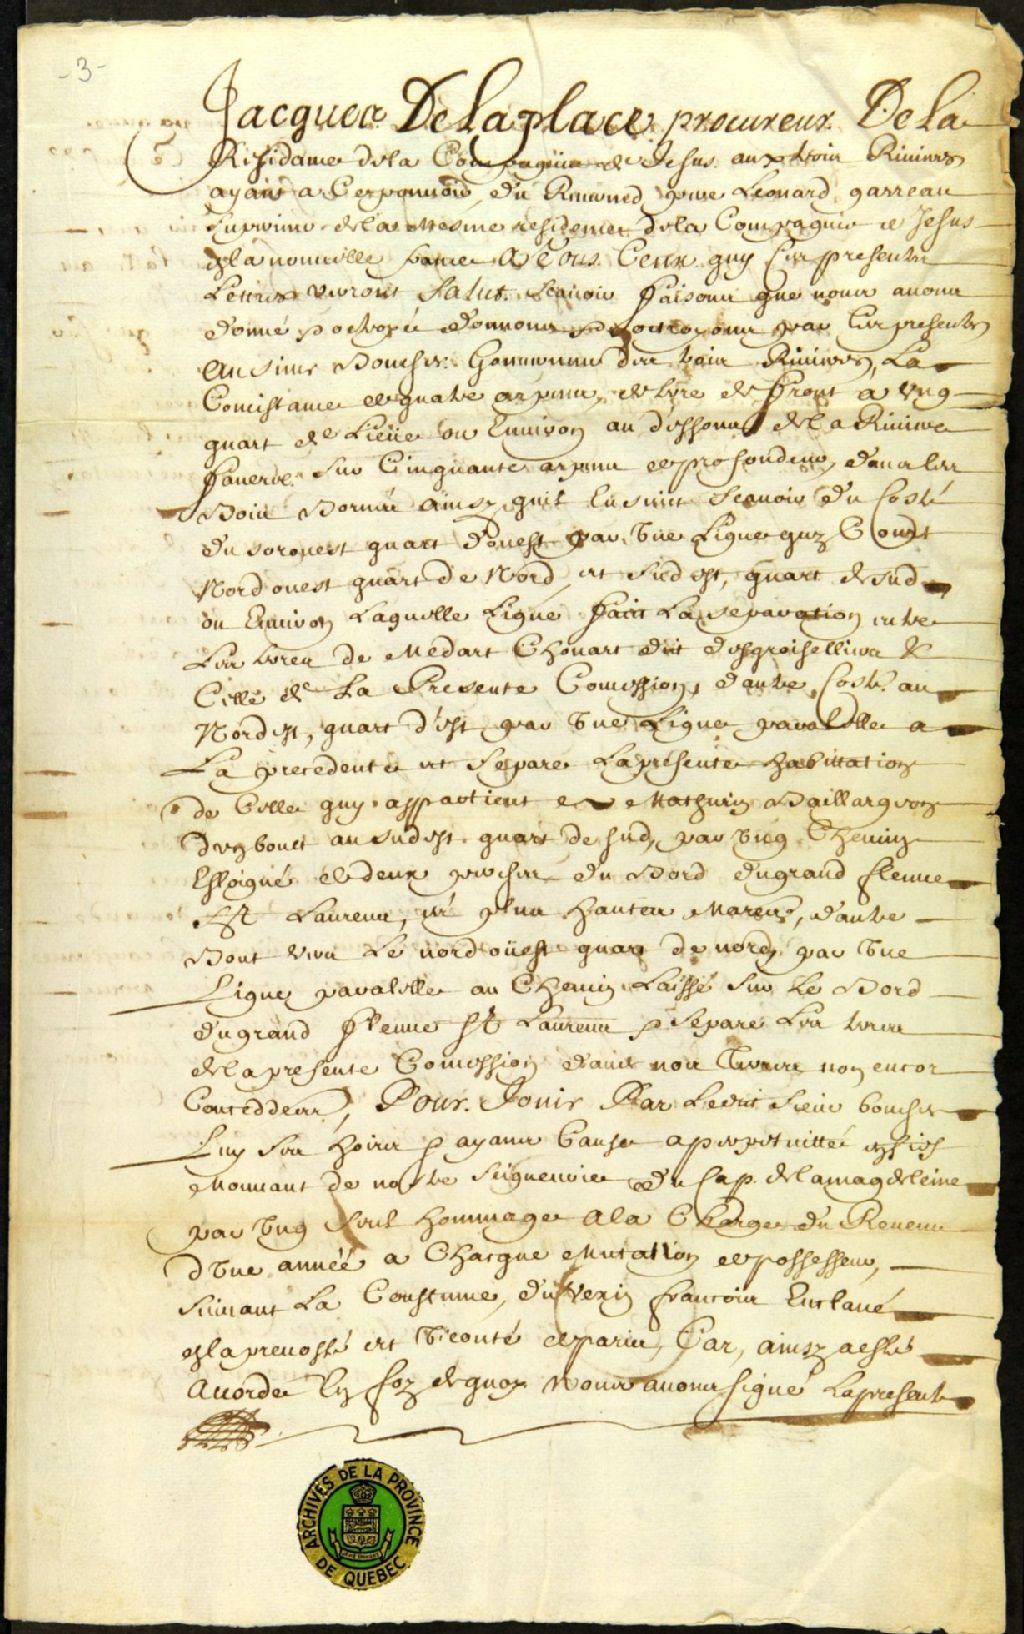 -3-
Jacques De Laplace procureur De la
Residance de la Compagnie de Jesus aux trois Rivieres
ayant du Reverend pere Leonard garreau
superieur de la mesme residence de la Compagnie de Jesus
en la nouvelle france A Tous Ceux quy Ces presentes
Lettres verront Salut scavoir faisons que nous avons
donné & octroyé donnons & octroyons par Ces presentes
Au sieur Boucher Gouverneur des trois Rivieres, La
Concistance de quatre arpens de terre de front a ung
quart de Lieüe ou Environ au dessous de la Riviere
sur Cinquante arpens de profondeur, dans les
Bois Bornée ainsy quil Ensuict scavoir du Costé
du sorouest quart d'ouest par Une Ligne quy Court
Nordouest quart de Nord et sud est, quart de sud
ou Environ Laquelle Ligne faict La separation entre
Les terres de Medart Chouart dit desgroiselliers &
Celle de La Presente Concession, d'autre Costé au
Nordest, quart d'est par Une Ligne paralelle a
La precedente et separe La presente habittation
de Celle quy appartient a Mathurin Baillargeon
D'un bout au sudest quart de sud, par Ung Chemin
Esloigné de deux perches du Bord du grand fleuve
St Laurens, es plus hautes Marées, d'autre
Bout vers Le nordoüest quart de nord par Une
Ligne paralelle au Chemin Laissé sur Le Bord
du grand fleuve St Laurens & separe Les terres
de la presente Concession d'avec nos Terres non encor
Conceddees, Pour Jouir Par Ledit Sieur boucher
Luy ses hoirs & ayans Cause a perpetuitté en fief
Mouvant de nostre seigneurie du Cap de la magdeleine
par Ung seul hommage A la Charge du Revenu
d'Une année a Chacque Mutation de possesseur,
suivant La Coustume du Vexin francois Enclavé
en la prevosté et Viconté de paris, Car, ainsy a esté
Accordé En foy de quoy Nous avons signé La presente
ARCHIVES DE LA PROVINCE
DE QUEBEC